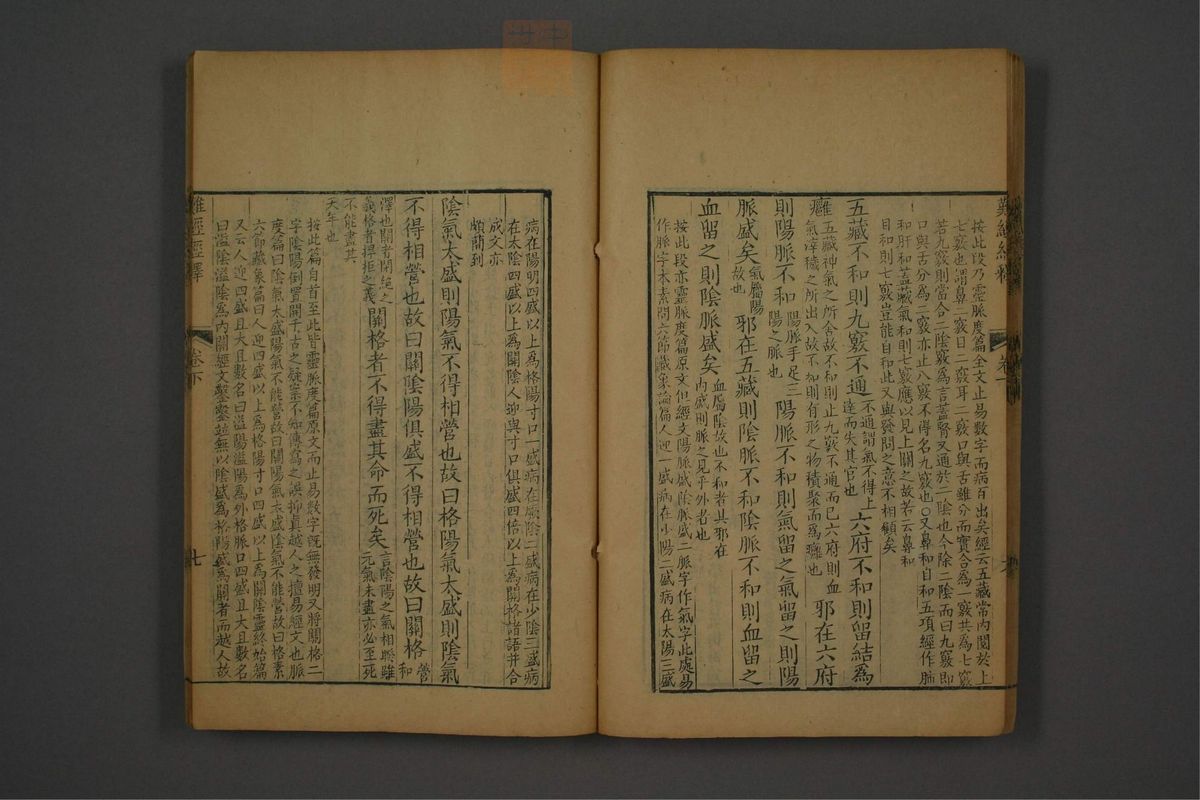 按此段乃靈脈度篇全文止易數字而病百出矣經云五藏常內閱於上
七竅也謂鼻二竅目二竅耳二竅口與舌雖分而實合為一竅共為七竅
若九竅則當合二陰竅為言蓋腎又通於二陰也今除二陰而曰九竅即
口與舌分為二竅亦止八竅不得名九竅也○又鼻和目和五項經作肺
和肝和蓋藏氣和則七竅應以見上關之故若云鼻和
目和則七竅豈能自和此又與發問之意不相顧矣
五藏不和則九竅不通不通謂氣不得上達而失其官也六府不和則留結爲
癰五藏神氣之所舍故不和則止九竅不通而已六府則血氣滓穢之所出入故不和則有形之物積聚而爲癰也邪在六府
則陽脈不和陽脈手足三陽之脈也陽脈不和則氣留之氣留之則陽
脈盛矣氣屬陽故也邪在五藏則陰脈不和陰脈不和則血留之
血留之則陰脈盛矣血屬陰故也不和者其邪在內盛則脈之見乎外者也
按此段亦靈脈度篇原文但經文陽脈盛陰脈盛二脈字作氣字此處易
作脈字未素問六節藏象論篇人迎一盛病在少陽二盛病在太陽三盛
病在陽明四盛以上爲格陽寸口一盛病在厥陰二盛病在少陰三盛病
在太陰四盛以上爲關陰人迎與寸口俱盛四倍以上爲關格諸語幷合
成文亦
頗簡到
陰氣太盛則陽氣不得相營也故曰格陽氣太盛則陰氣
不得相營也故曰關陰陽俱盛不得相營也故曰關格營和
澤也關者閉絕之義格者捍拒之義關格者不得盡其命而死矣言陰陽之氣相睽雖元氣未盡亦必至死
不能盡其
天年也
按此篇自首至此皆靈脈度篇原文而止易數字既無發明又將關格二
字陰陽倒置開千古之疑案不知傳寫之誤抑眞越人之擅易經文也脈
度篇曰陰氣太盛陽氣不能營故曰關陽氣太盛陰氣不能營故曰格素
六節藏象篇曰人迎四盛以上爲格陽寸口四盛以上爲關陰靈終始篇
又云人迎四盛且大且數名曰溢陽溢陽爲外格脈口四盛且大且數名
曰溢陰溢陰爲內關經文鑿鑿並無以陰盛爲格陽盛爲關者而越人故
難經經釋
卷下
七